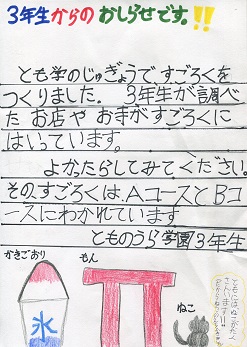 3年生からのおしらせです。!!
とも学のじゅぎょうですごろくを
つくりました。3年生が調べ
たお店やお寺がすごろくに
はいっています。
よかったらしてみてください。
その、すごろくは、AコースとBコ
ースにわかれています
とものうら学園3年生
かきごおり
もん
ねこ
氷